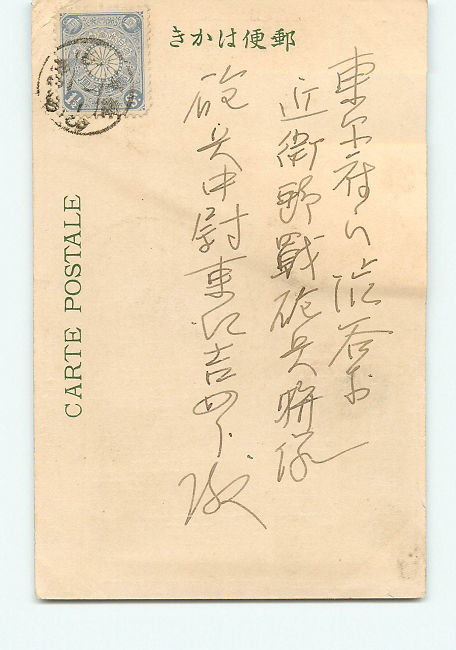 きかは便郵
東京府下渋谷村
近衛野戦砲兵聯隊
砲兵中尉東江吉四郎殿
CARTE POSTALE
1½